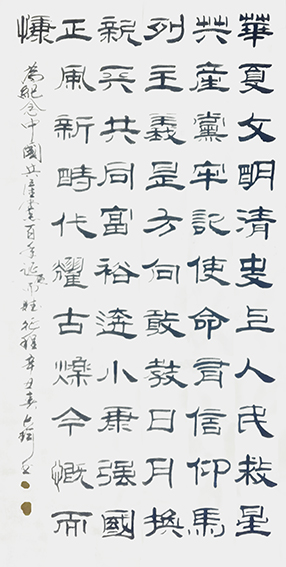 華夏文明清史上人民救星
共產黨牢記使命有信仰馬
列主義是方向敢教日月換
新天共同富裕逩小康強國
正風新時代耀古爍今慨而
慷
為紀念中國共產黨百年誕 辛丑春 书